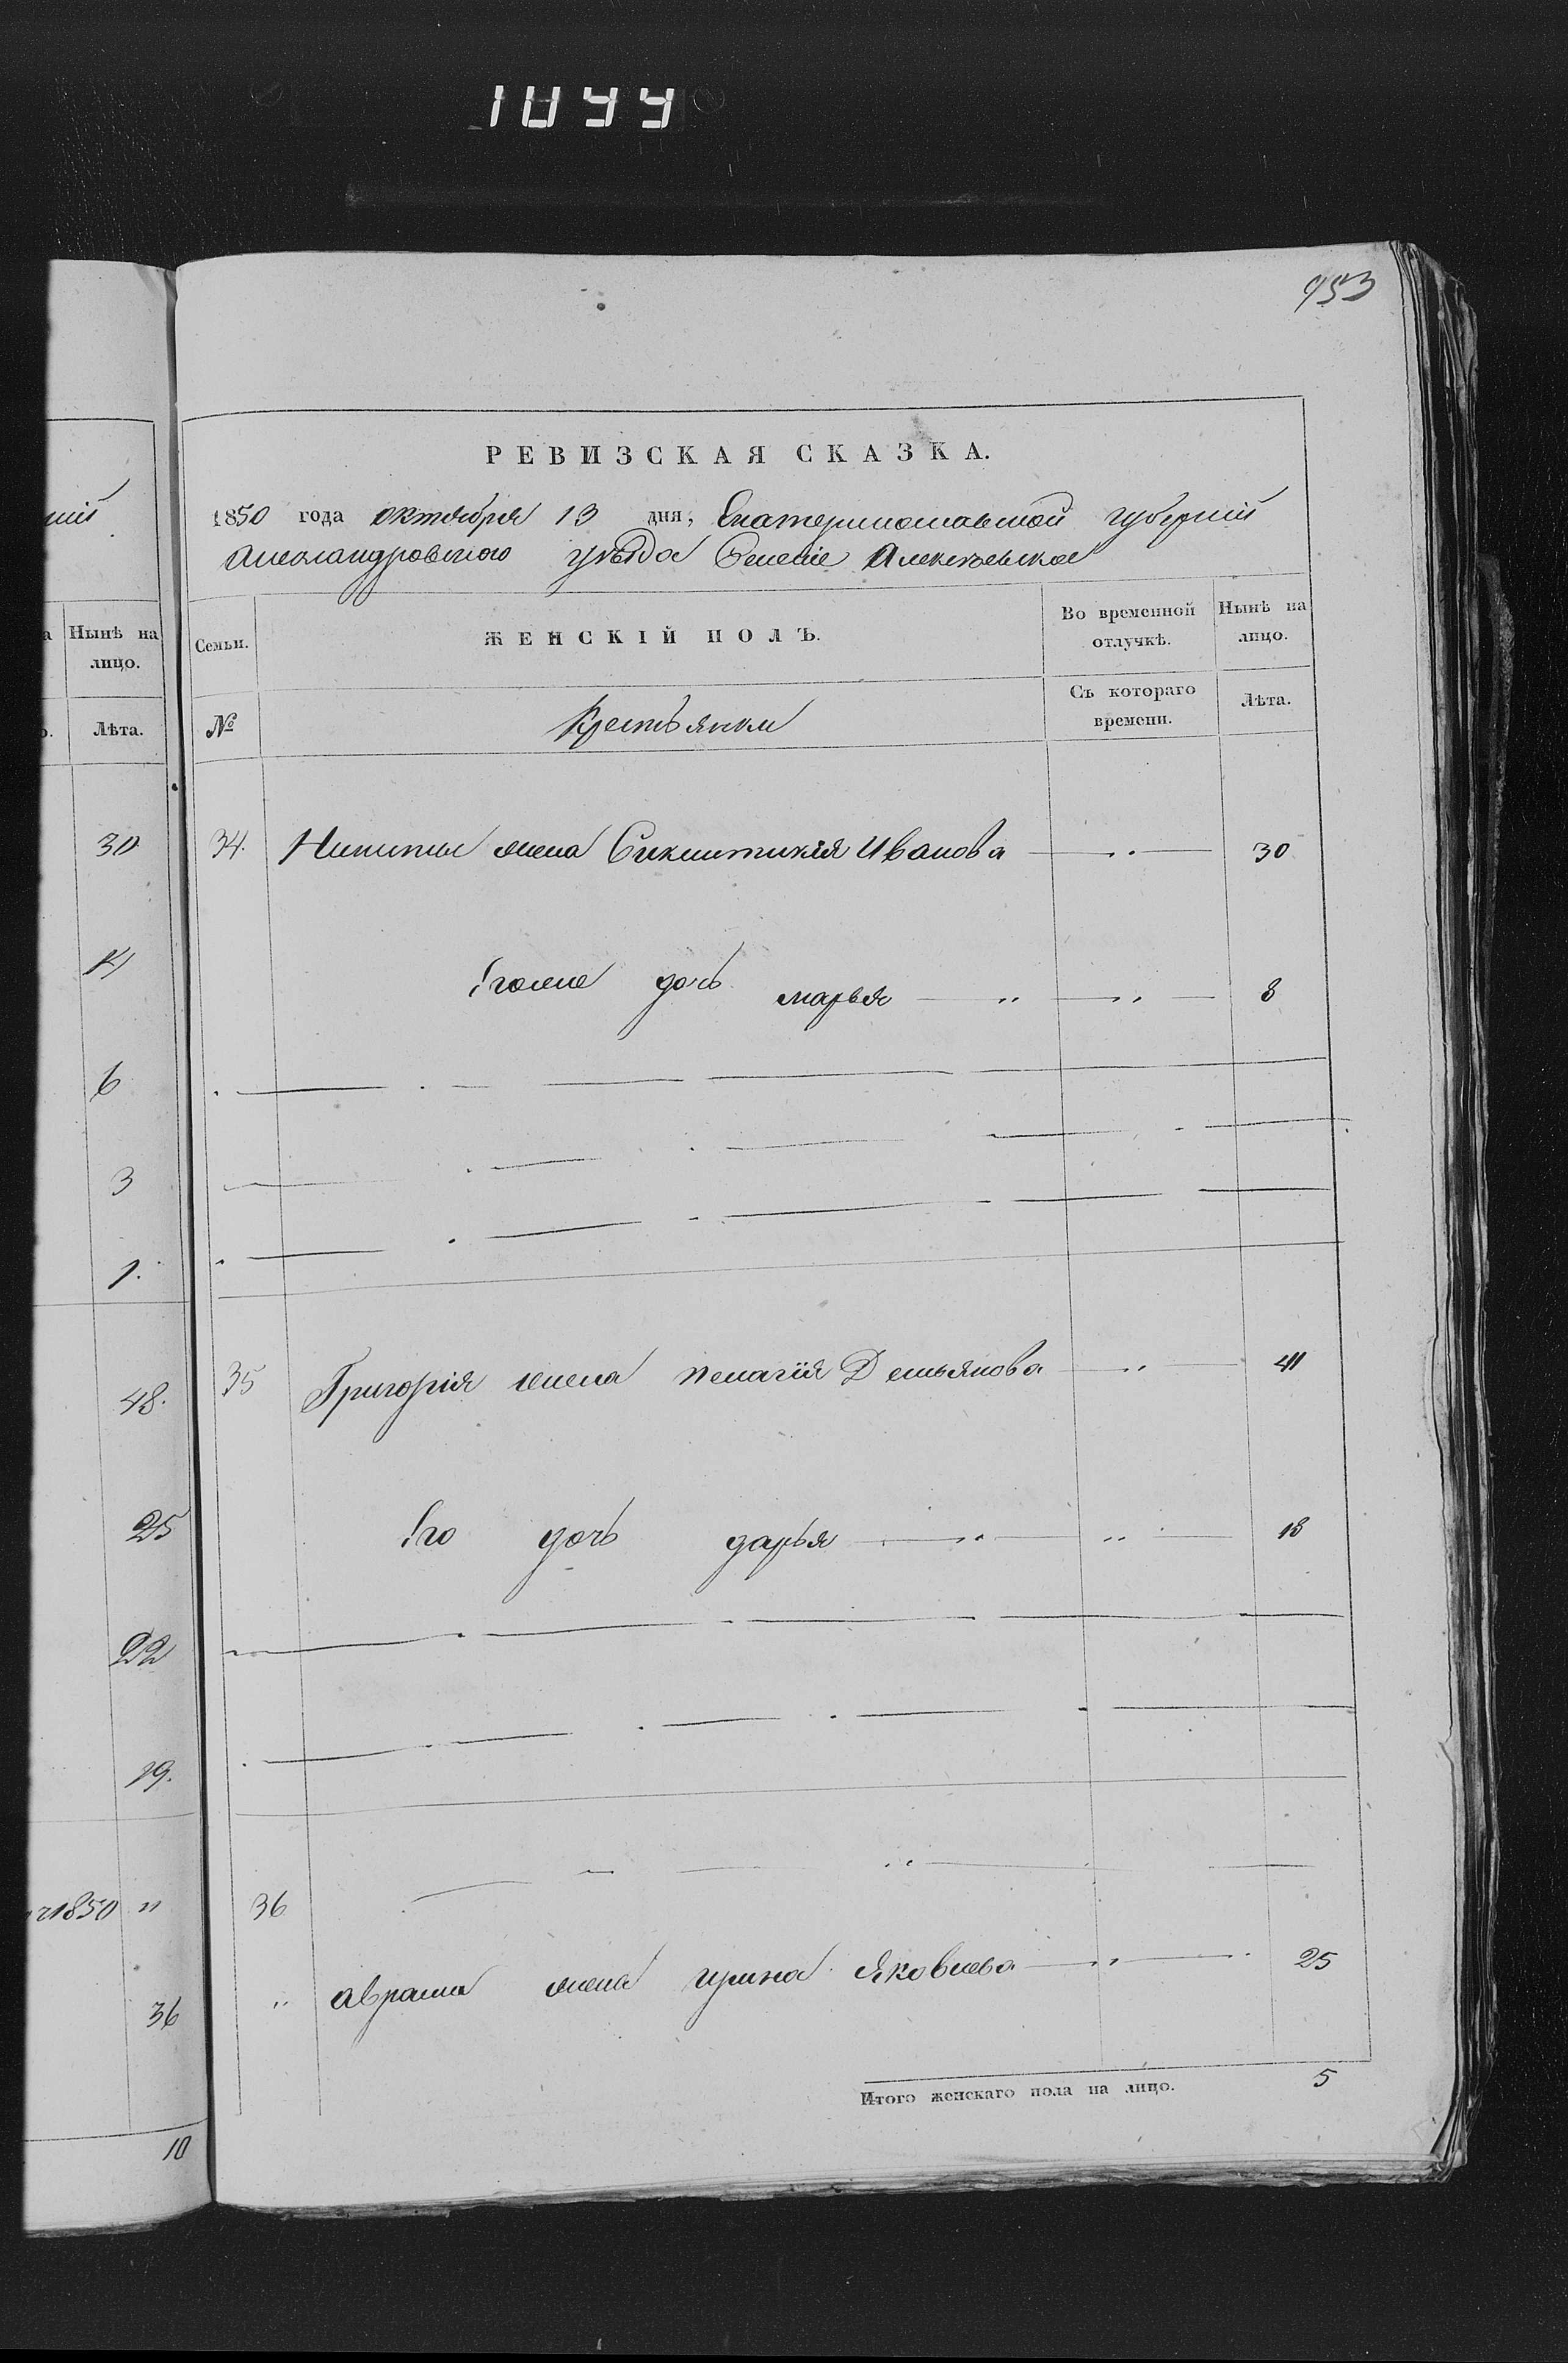 953
ній
а Нынѣ на
лицо.
Лѣта.
30
14
6
3
1.
48.
25
22
19.
1850 "
36
10
РЕВИЗСКАЯ СКАЗКА.
1850 года октября 13 дня, Екатеринославской губерній
Александровского уѣзда Селеніе Алексѣевское
Семьи. ЖЕНСКІЙ ПОЛЪ. Во временной отлучкѣ. Нынѣ на лицо.
№ Крестьянки Съ котораго времени. Лѣта.
34. Никиты жена Иванова — " — 30
Егоже дочь марья — " — " — 8
35 Григорія жена пелагія Демьянова — " — 41
Его дочь дарья — " — " — 18
36
" аврама жена ирина Яковлева — " — 25
Итого женскаго пола на лицо. 5